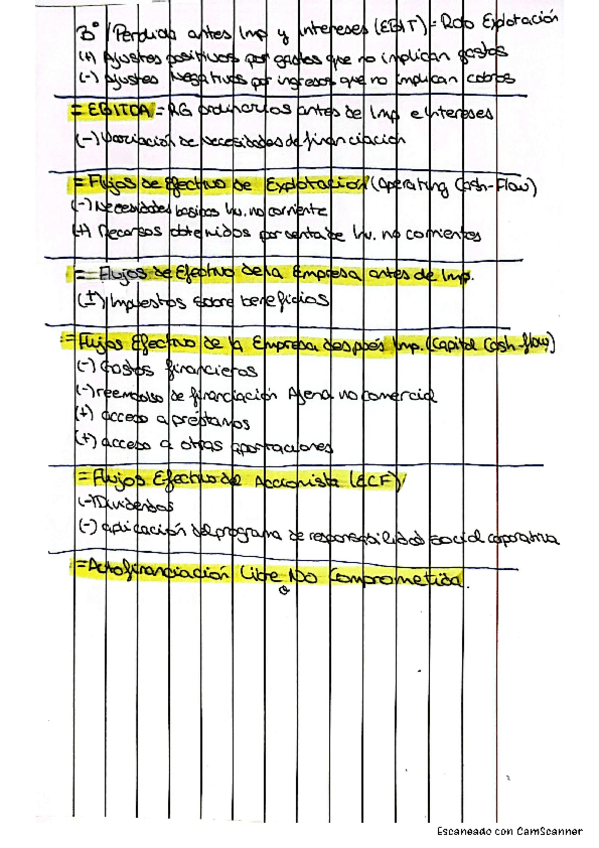 Bº/Perdida antes Imp y intereses (EBIT) = Rdo Explotación
(+) Ajustes positivos por gastos que no implican gastos
(-) Ajustes Negativos por ingresos que no implican cobros
= EBITDA = RG ordinarios antes de Imp e Intereses
(-) Variación de necesidades de financiación
= Flujos de Efectivo de Explotación (Operating Cash-Flow)
(-) Necesidades basicas Inv. no corriente
(+) Recursos obtenidos por venta de Inv. no corrientes
= Flujos de Efectivo de la Empresa antes de Imp.
(±) Impuestos sobre beneficios
= Flujos Efectivo de la Empresa después Imp. (Capital Cash-flow)
(-) Gastos financieros
(-) reembolso de financiación Ajena no comercial
(+) acceso a préstamos
(+) acceso a otras aportaciones
= Flujos Efectivo del Accionista (ECF)
(-) Dividendos
(-) aplicación del programa de responsabilidad social coporativa
= Autofinanciación Libre o No Comprometida.
Escaneado con CamScanner